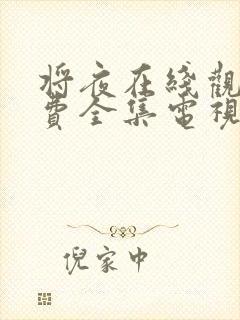 將夜在綫觀
費全集電視
倪家中